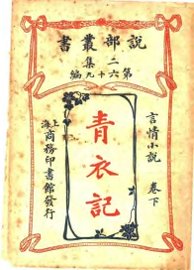 說部叢書
二集
第六十九編
言情小說 卷下
青衣記
上海
商務印書館發行